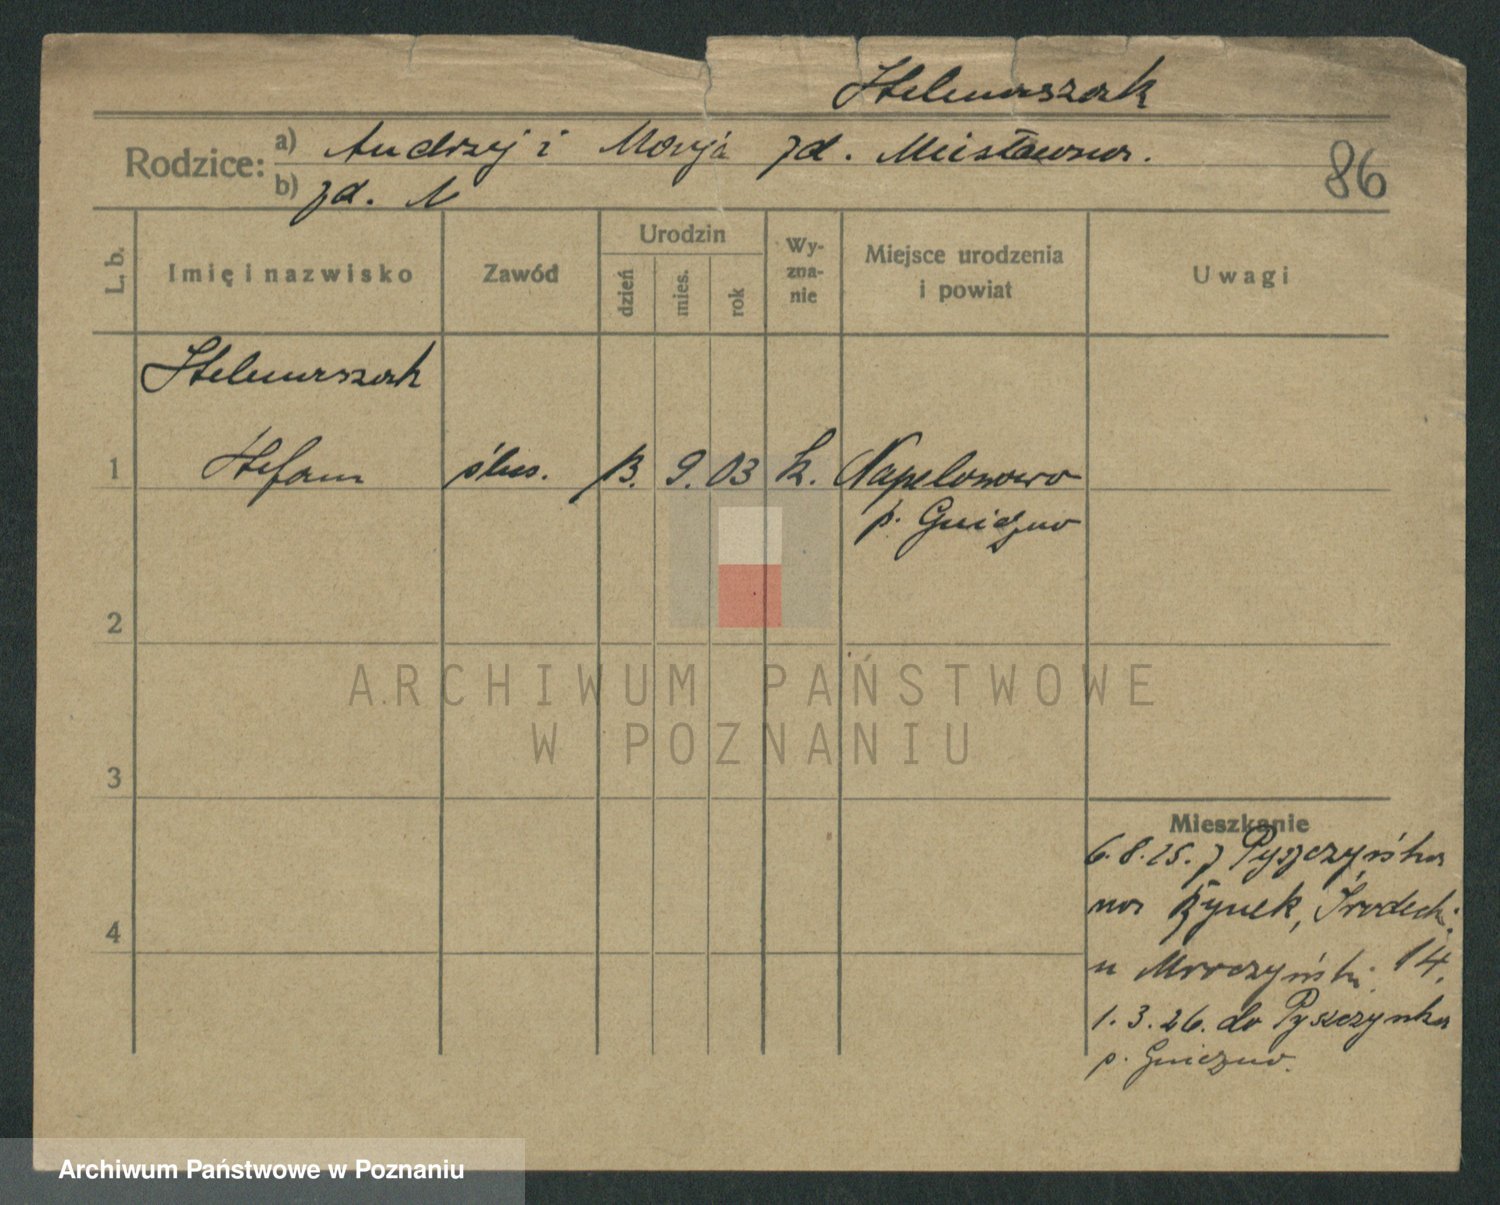 Stelmaszak
Rodzice:
a) Andrzej i Marja zd. Misławna.
b) zd. N
86
L. b.
Imię i nazwisko
Zawód
Urodzin
dzień
mies.
rok
Wy-
zna-
nie
Miejsce urodzenia
i powiat
Uwagi
Stelmaszak
1 Stefan ślus. 13. 9. 03 k. Napelonowo
p. Gniezno
2
3
4
Mieszkanie
6.8.25. z Pyszczynka
na Rynek, Środecki.
u Mroczyński. 14.
1.3.26. do Pyszczynka
p. Gniezno.
ARCHIWUM PAŃSTWOWE
W POZNANIU
Archiwum Państwowe w Poznaniu